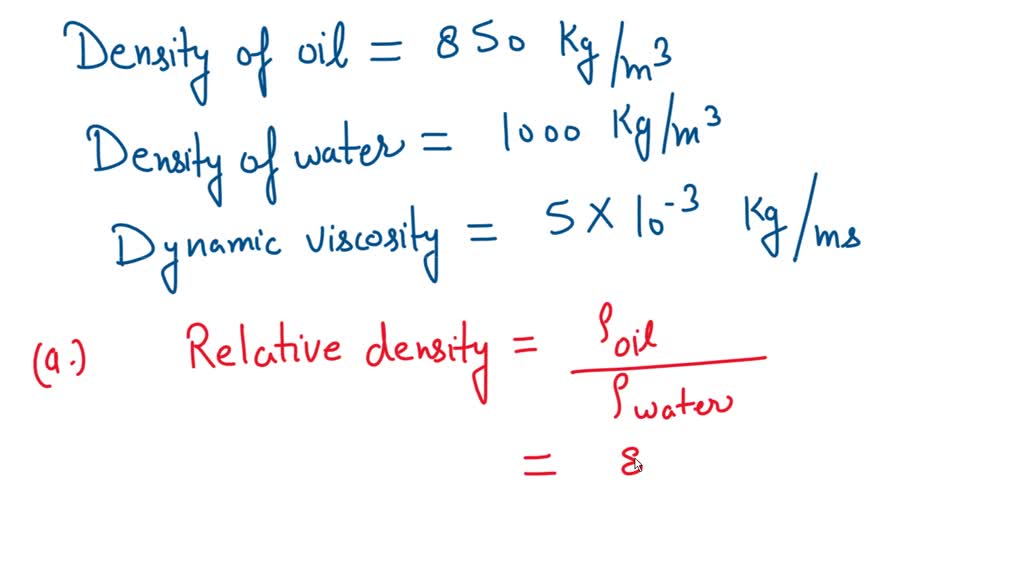 Density of oil = 850 Kg/m³
Density of water = 1000 Kg/m³
Dynamic viscosity = 5 X 10⁻³ Kg/ms
(a.) Relative density = ρoil / ρwater
= 8